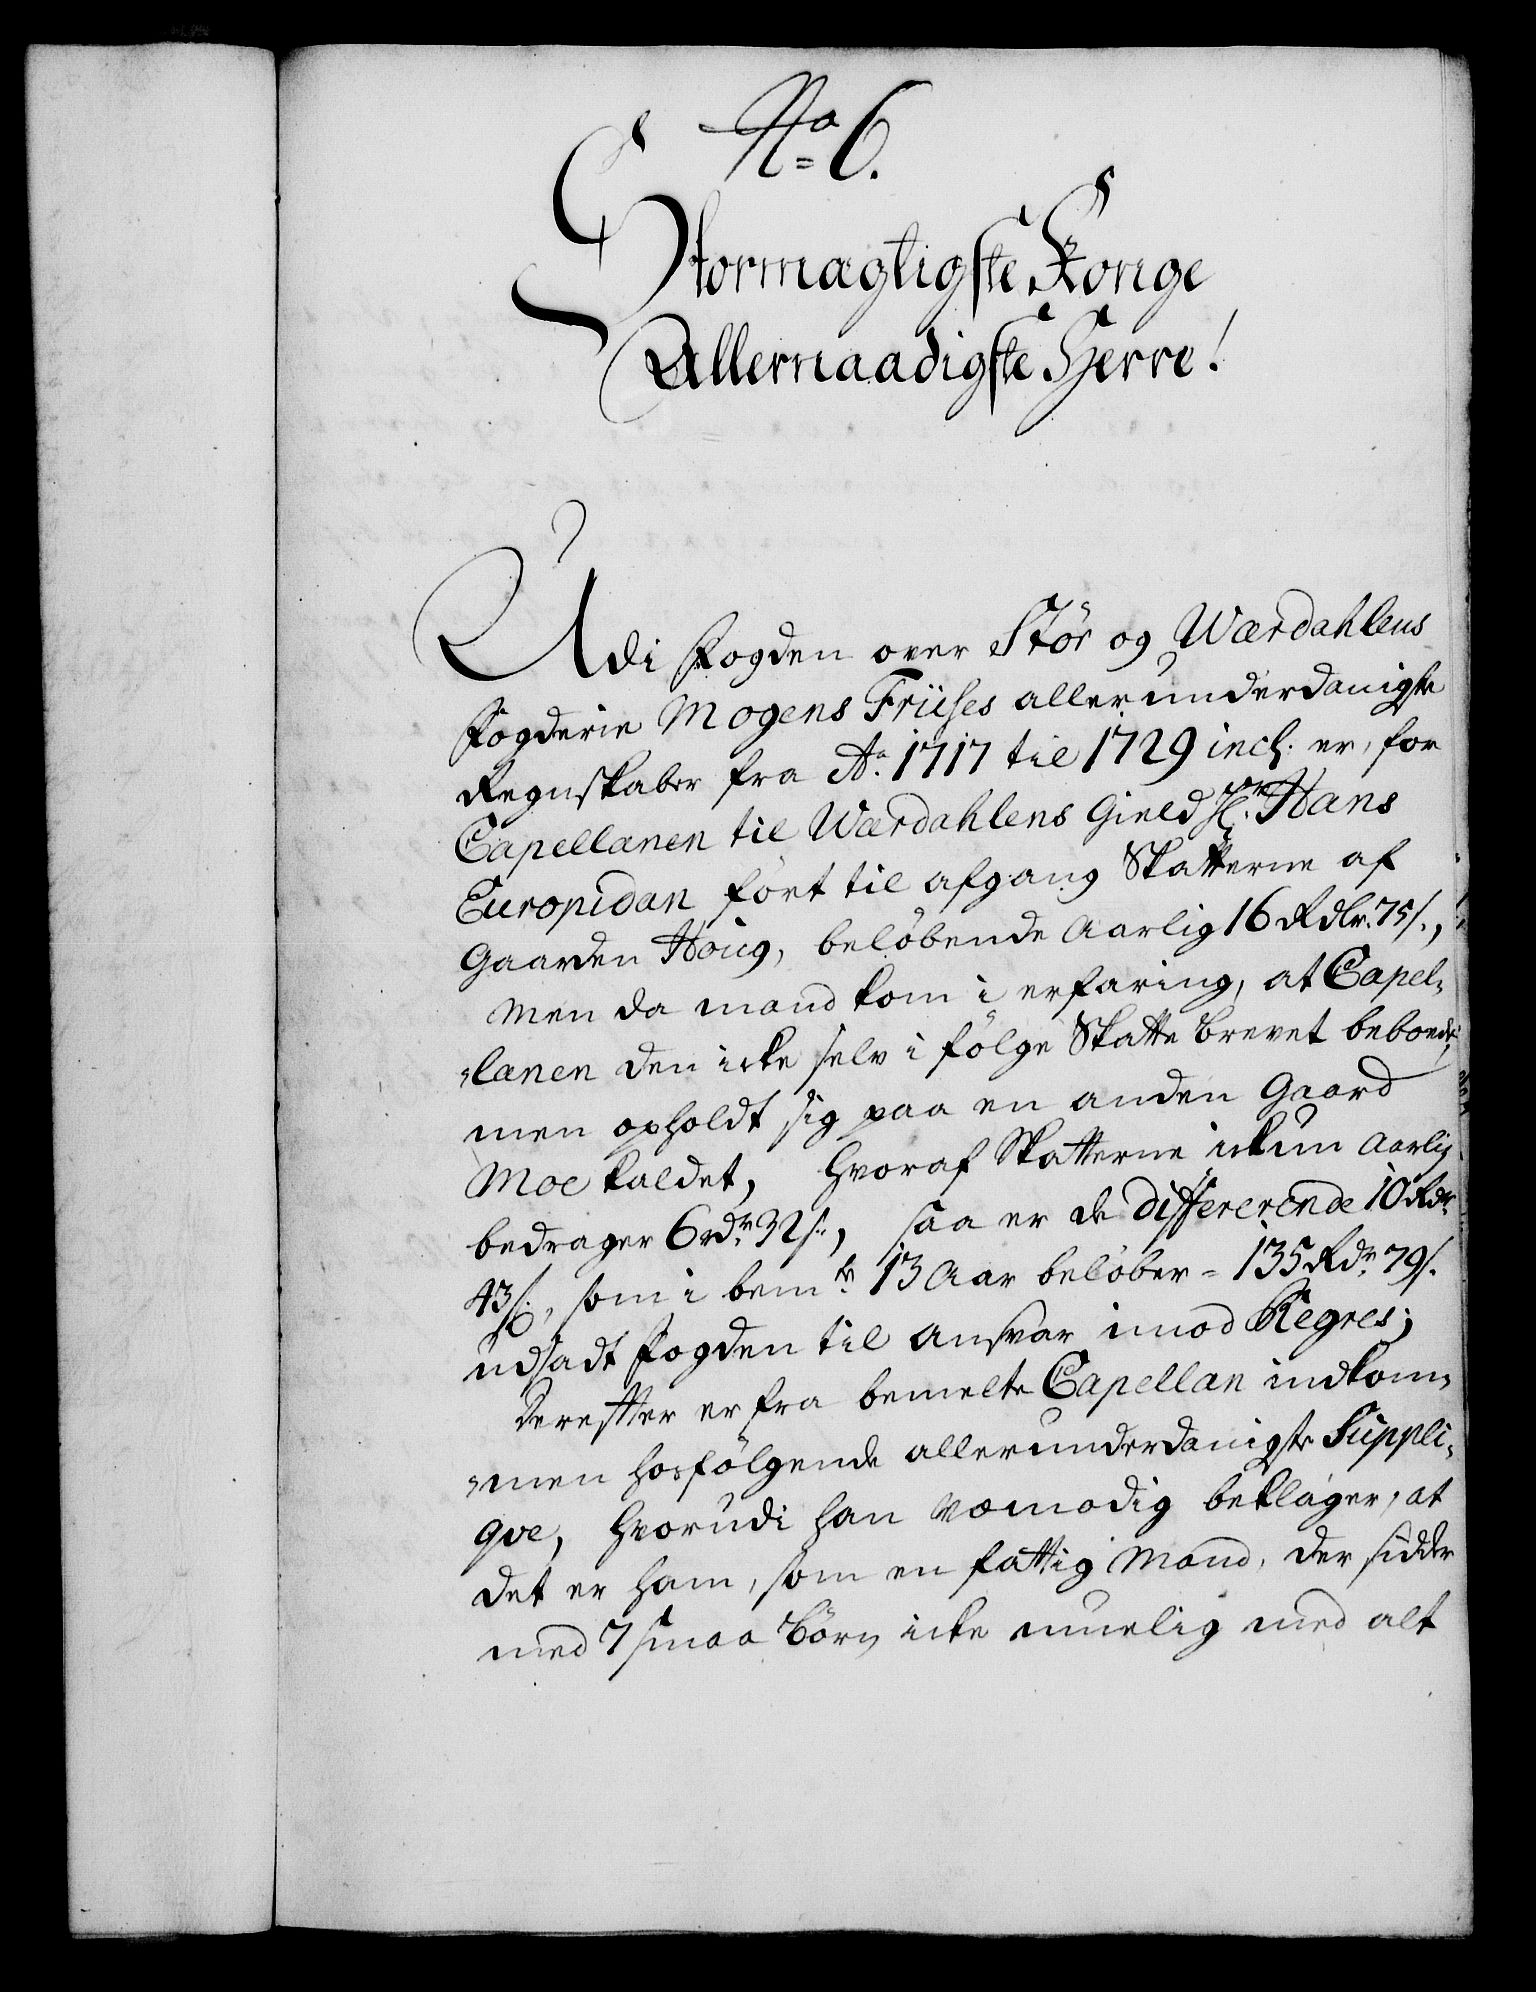 No 6.
Stormagtigste Konge
Allernaadigste Herre!
Udi Fogden over Stör og Wærdahlens
Fogderie Mogens Friises allerunderdanigste
Regnskaber fra Ao. 1717 til 1729 incl. er, for
Capellanen til Wærdahlens Gield Hr. Hans
Europidan fört til afgang Skatterne af
Gaarden Houg, belöbende Aarlig 16 Rdlr. 75 s.,
Men da mand kom i erfaring, at Capel-
-lanen den icke selv i fölge Skatte Brevet beboede,
men opholdt sig paa en anden Gaard
Moe kaldet, hvoraf Skatterne ickun Aarlig
bedrager 6 rdr. 32 s., saa er de differerende 10 Rdr.
43 s., som i bem.te 13 Aar belöber = 135 Rdr. 79 s.
udsadt Fogden til Ansvar imod Regres;
Derefter er fra bemelte Capellan indkom-
-men hosfölgende allerunderdanigste Suppli-
qve, hvorudi han Vemodig beklager, at
det er ham, som en fattig Mand, der sidder
med 7 smaa Börn icke muelig med alt